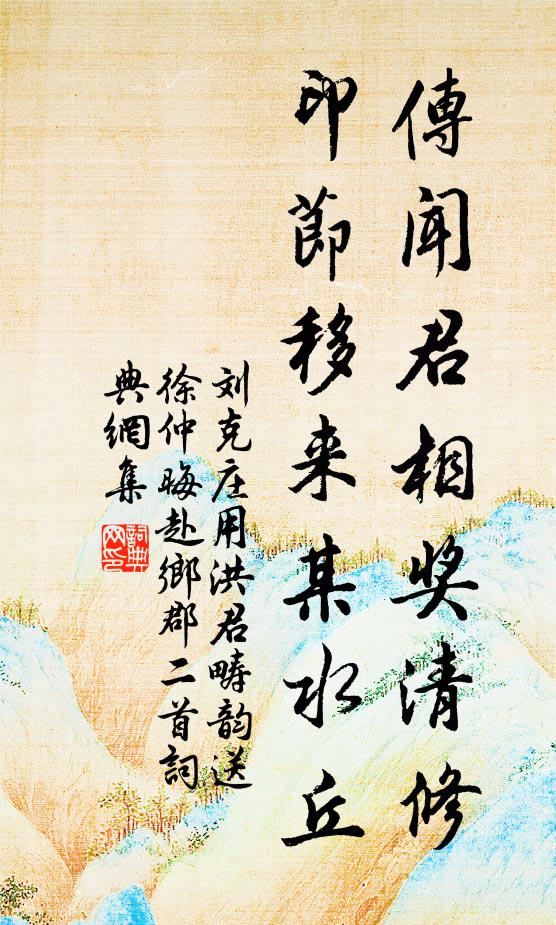 傳聞君相奬清修
印節移来某水丘
刘克庄用洪君疇韵送
徐仲晦赴鄉郡二首詞
典網集
詞典